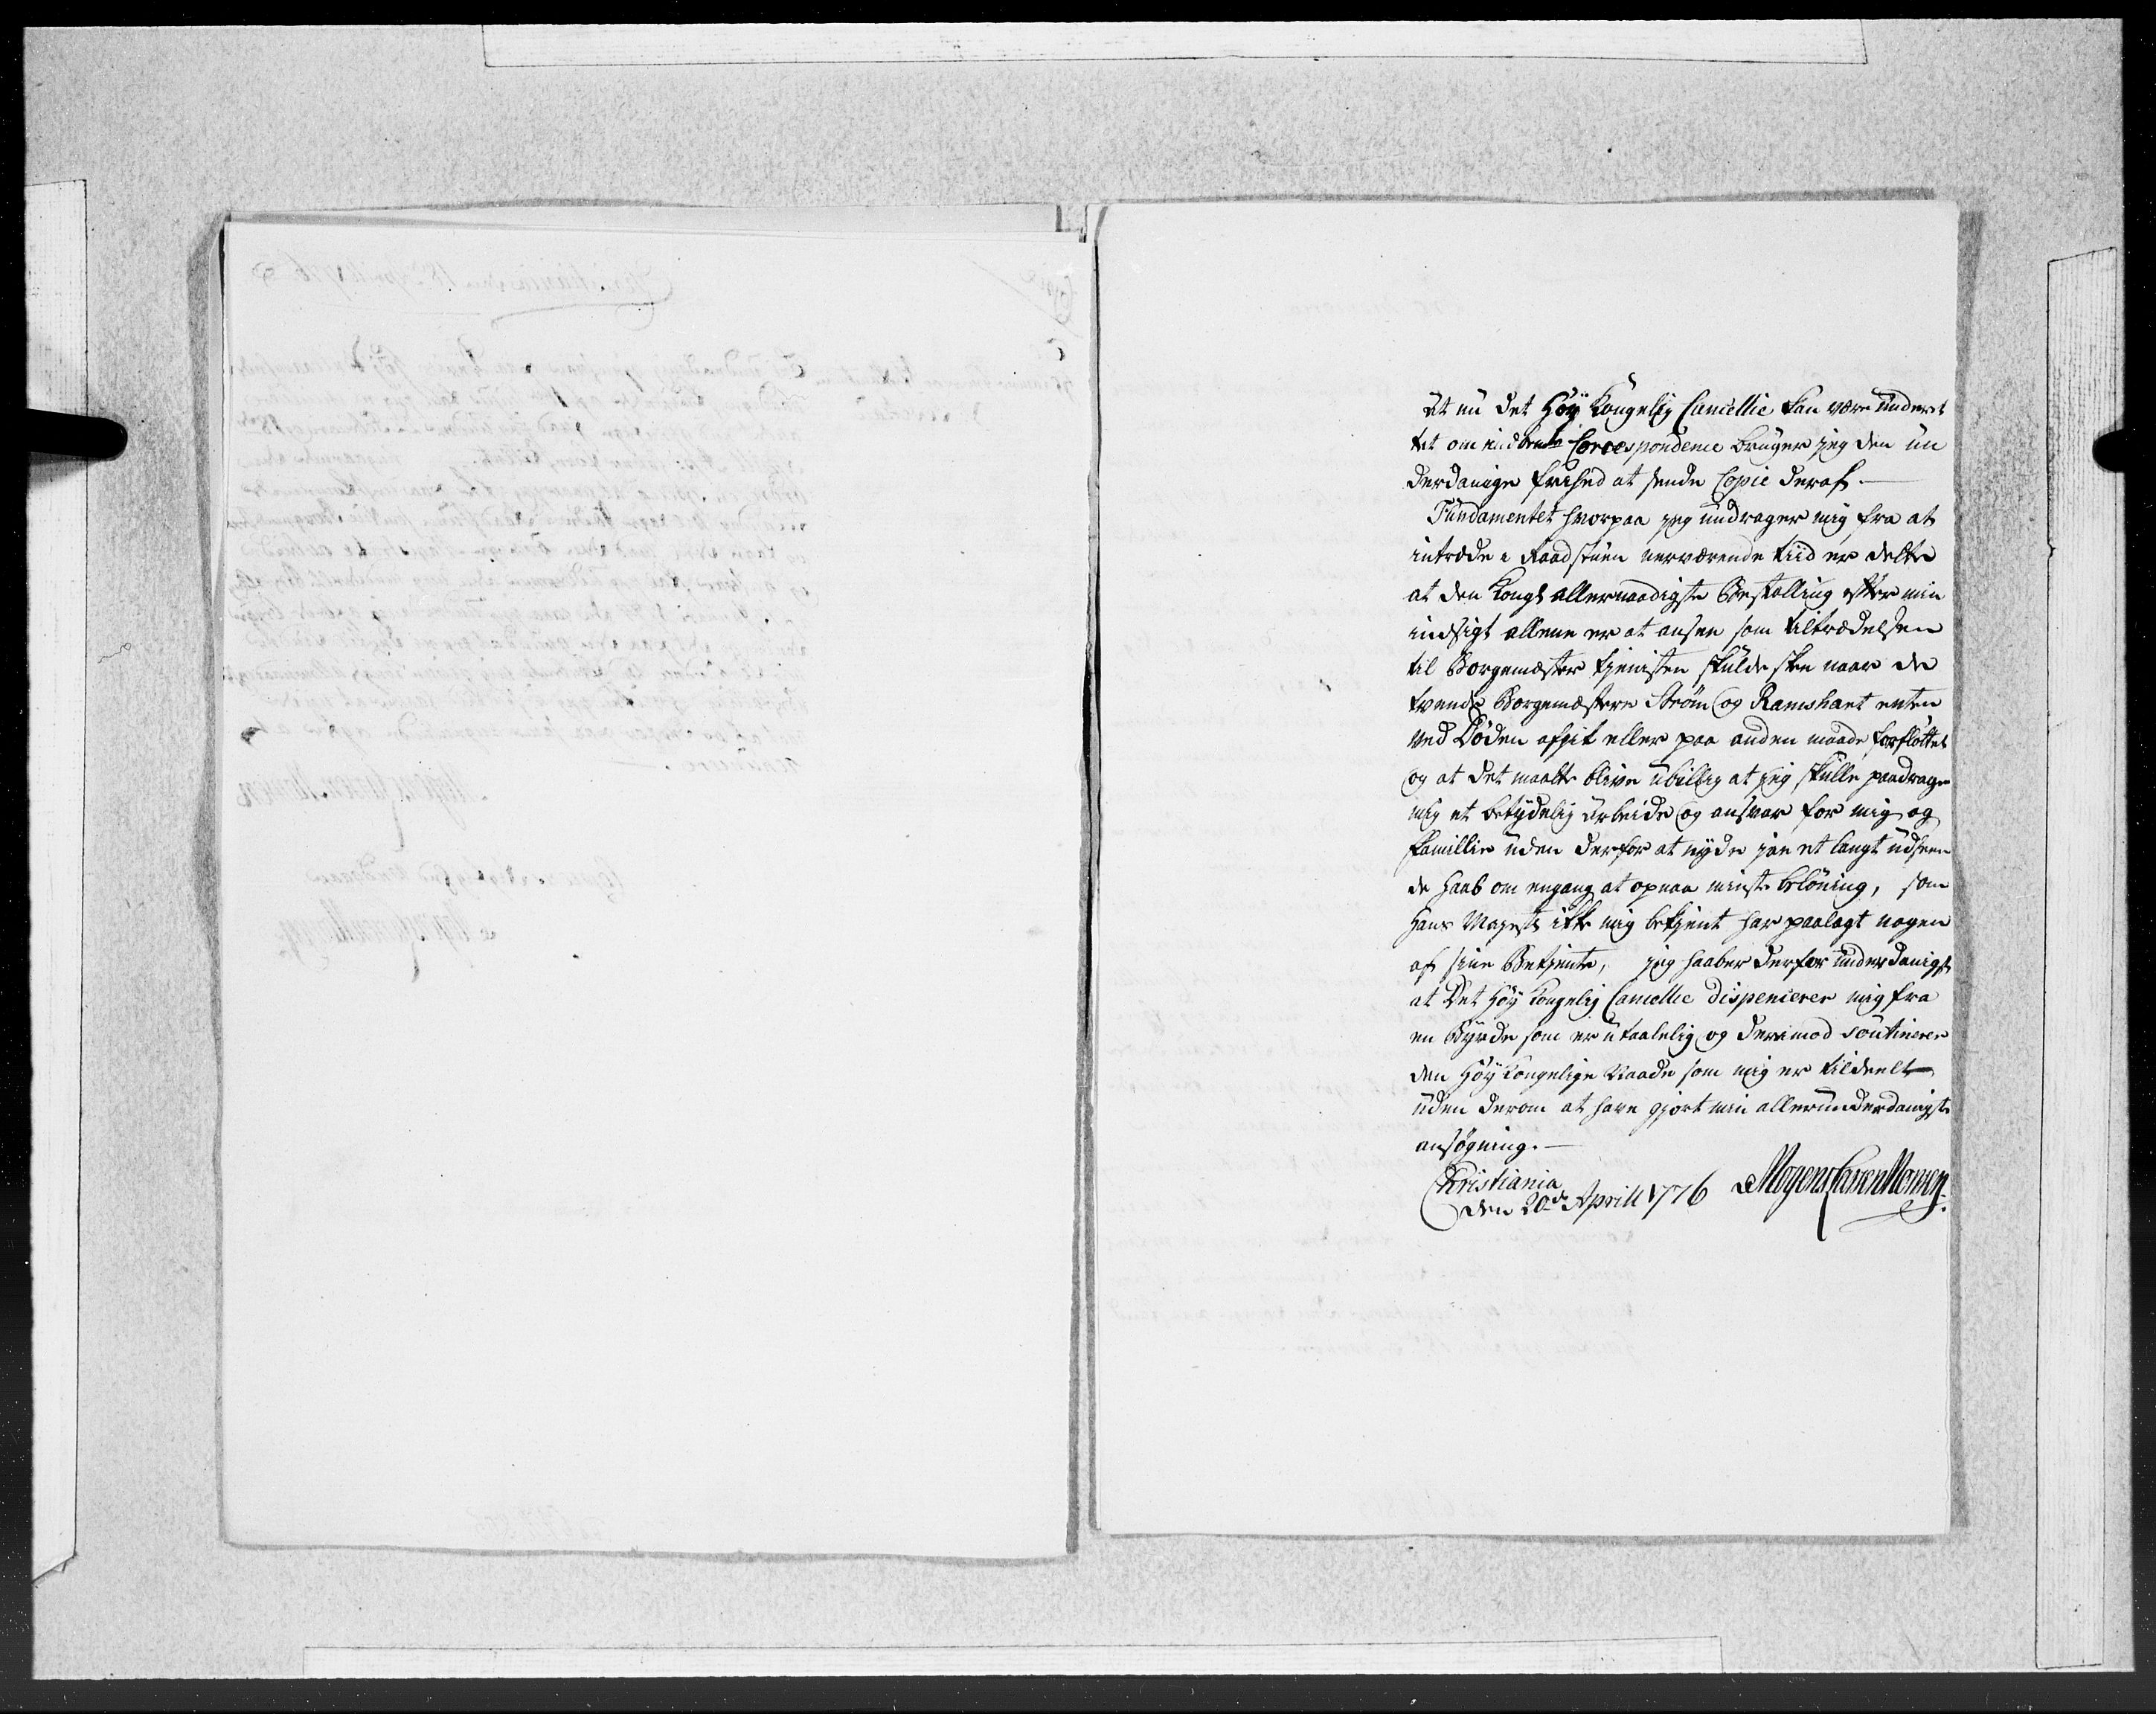 At nu det Høy Kongelig Cancellie kan være underet
tet om indbente Correspondence bruger jeg den un
derdanige frihed at sende Copie deraf. —
Fundamentet hvorpaa jeg undrager mig fra at
intræde i Raadstuen nerværende tiid er dette
at den Kongl allernaadigste Bestalling efter min
indsigt allene er at ansee som tiltrædelsen
til Borgemæster tjenisten skulde skee naar de
tvende Borgemæstere Strøm og Ramshart enten
ved Døden afgik eller paa anden maade forfløttet
og at det maatte blive ubillig at jeg skulle paadrage
mig et betydelig arbeide og ansvar for mig og
Famillie uden derfor at nyde jae et langt udseen
de haab om engang at opnaa minste belöning, som
Hans Mayests ikke mig bekjent har paalagt nogen
af sine Betjente, jeg haaber derfor underdanigst
at Det Høy Kongelig Cancellie dispencerer mig fra
en Byrde som er utaalelig og derimod soutinerer
den Høy Kongelige Naade som mig er tildeelt
uden derom at have gjort min allerunderdanigste
ansøgning. —
Christiania
den 20de Aprill 1776 Mogens Larsen Monsen